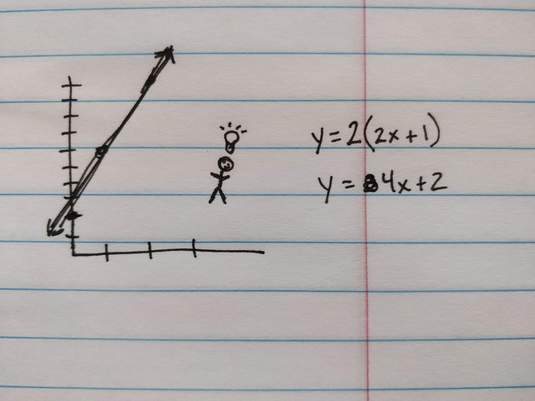 y=2(2x+1)
y=4x+2